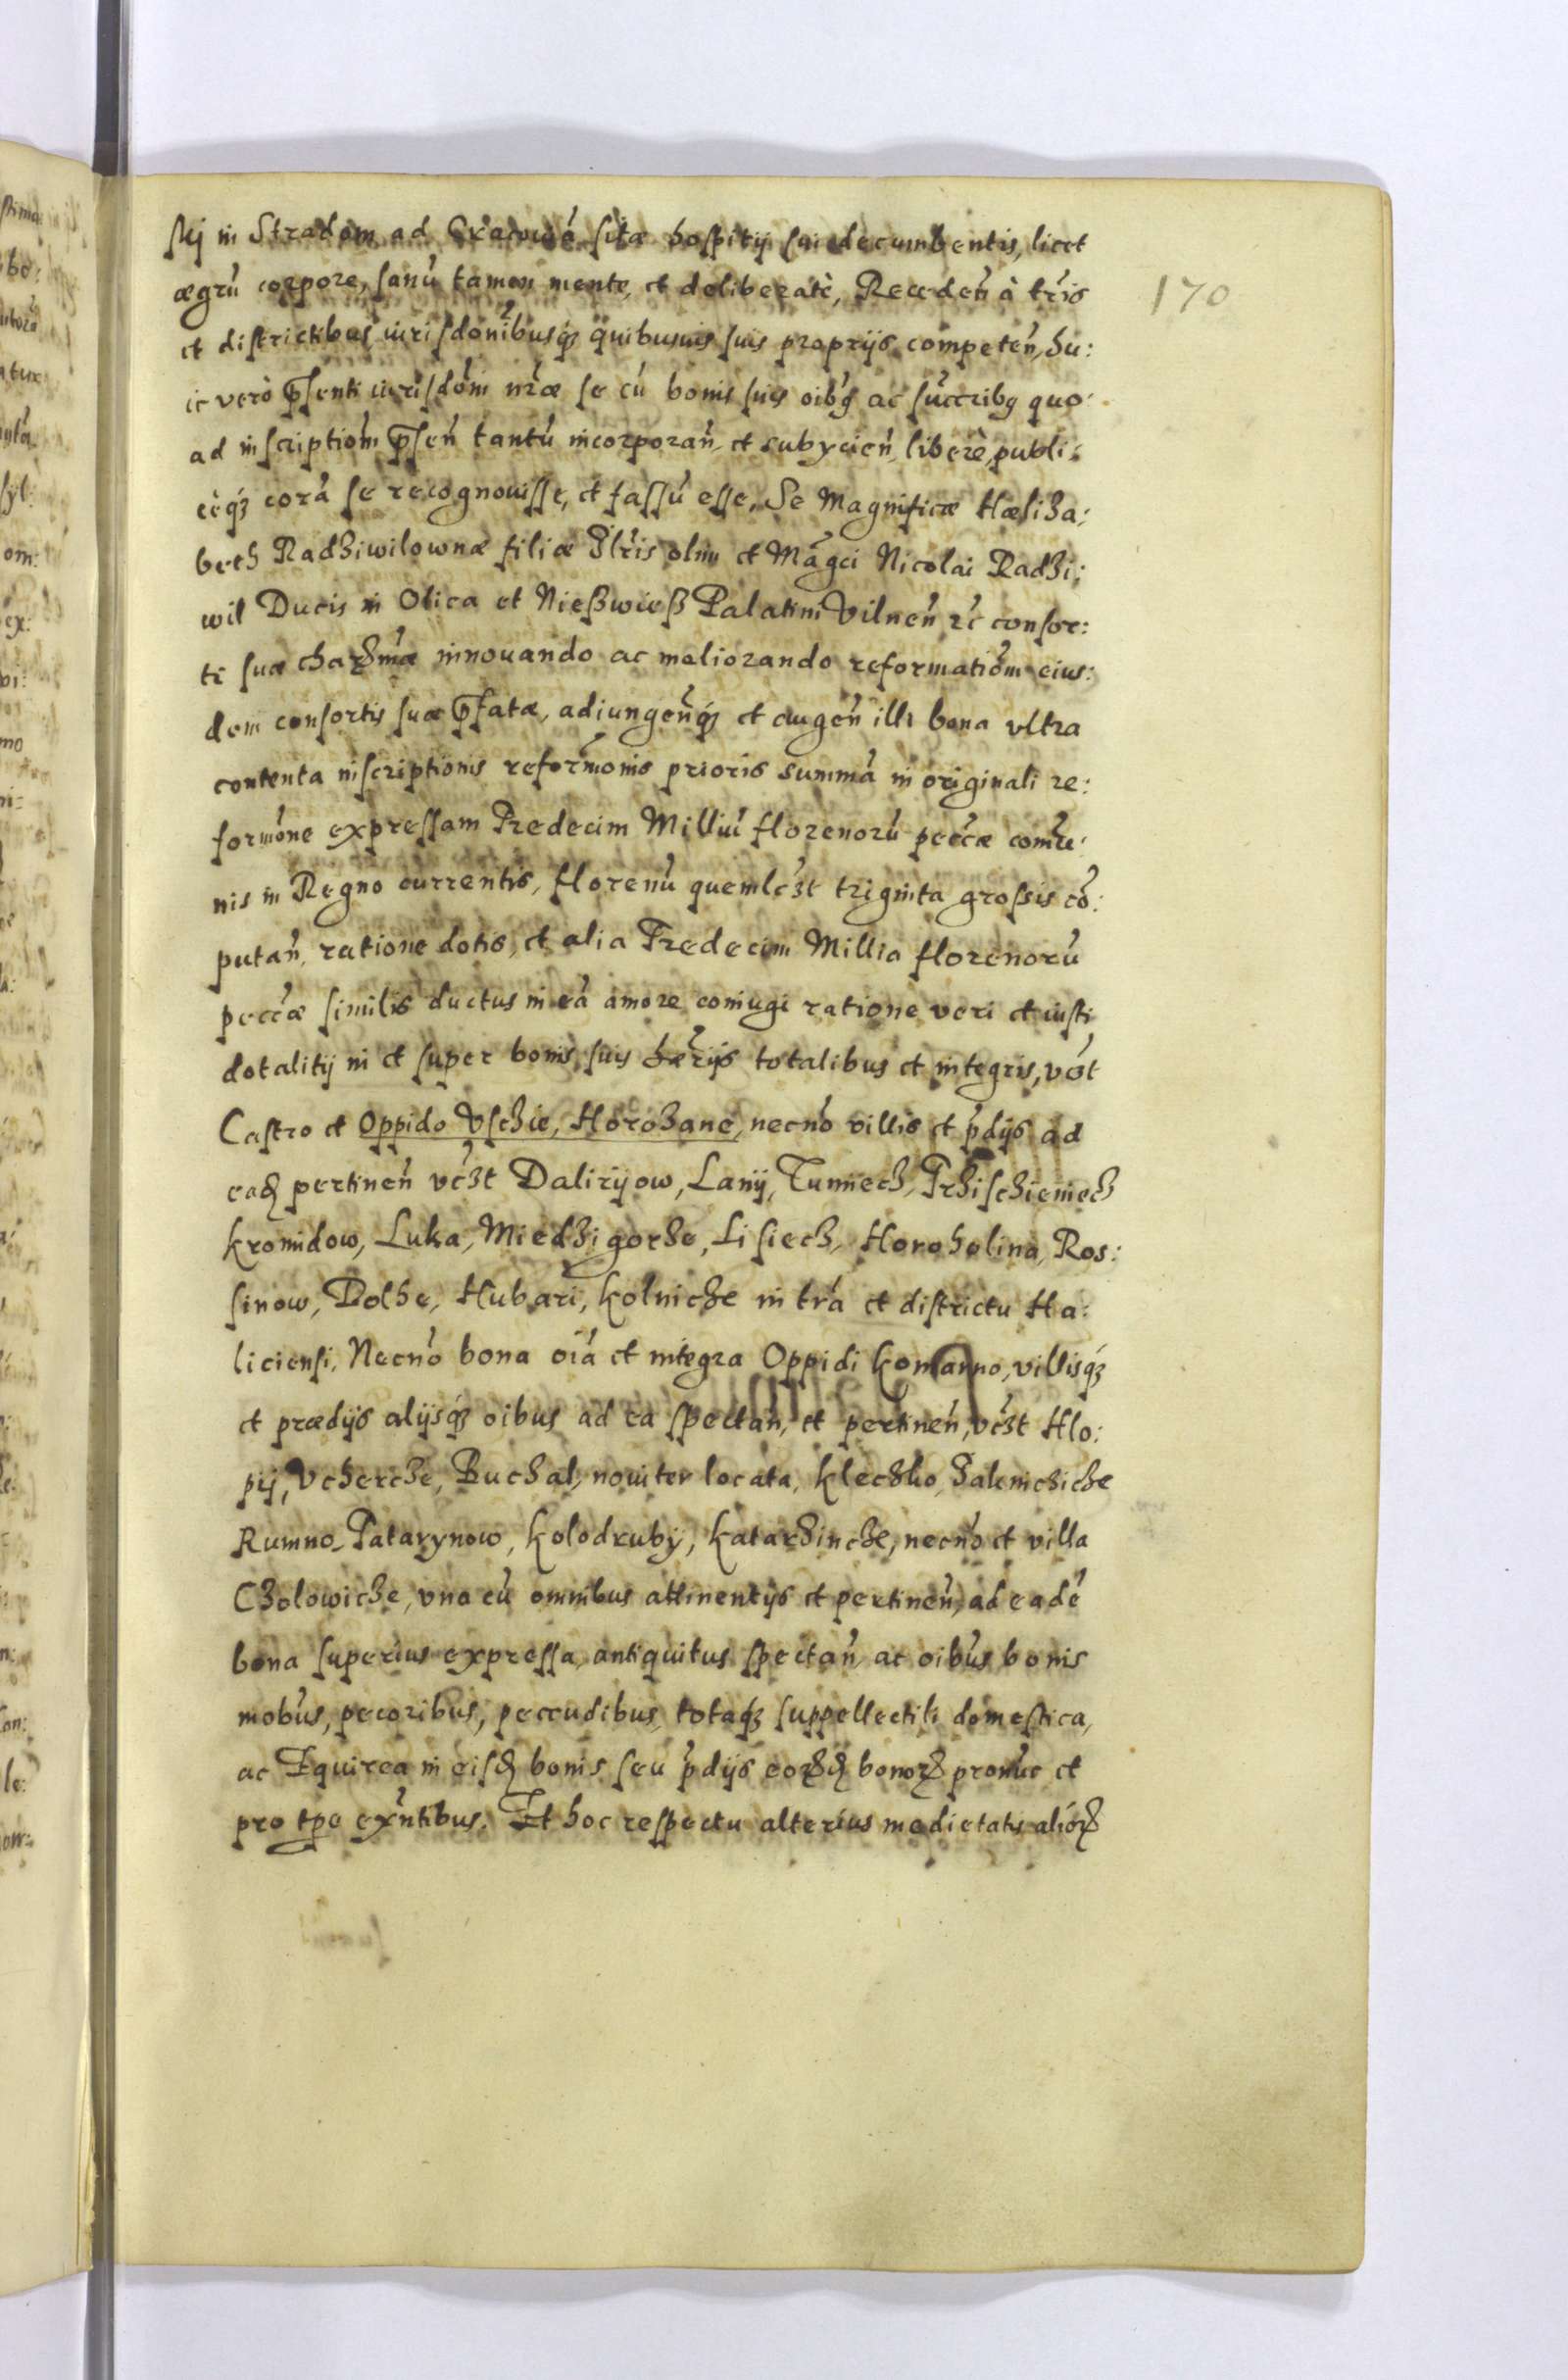 skij in Stradom ad Cracouiá sitæ hospitij sui decumbentis, licet
ægrū corpore, sanū tamen mente, et deliberatè, Receden̄ à tr̄is
et districtibus iurisdōnibusq́ꝫ quibusuis suis proprijs competen̄, hu:
ic verò p̄senti iurisdōni nr̄æ se cū bonis suis oīb9 ac succrib9 quo
ad inscriptiōm p̄sen̄ tantū incorporan̄ et subycien̄, liberè, publi:
cèq́ꝫ corā se recognouisse, et fassū esse, Se Magnificæ Hæliza:
beth Radziwilownæ filiæ Illr̄is olim et Māgci Nicolai Radzi:
wil Ducis in Olica et Nießwieß Palatini Vilnen̄ ꝛc̄ consor:
ti suæ charꝫmæ innouando ac meliorando reformatiōm eius:
dem consortis suæ p̄fatæ, adiungen̄q́ꝫ et augen̄ illi bona vltra
contenta inscriptionis reformōnis prioris summā in originali re:
formōne expressam Tredecim Milliū florenorū pecc̄æ comū:
nis in Regno currentis, florenū quemlꝫt triginta grossis cō:
putan̄, ratione dotis, et alia Tredecim Millia florenorū
pecc̄æ similis ductus in eā amore coniugi ratione veri et iusti
dotalitij in et super bonis suis hær̄ijs totalibus et integris, vꝫt
Castro et Oppido Vschie, Horozane, necnō villis et p̄dijs ad
eadꝫ pertinen̄ vcꝫt Daliryow, Lany, Tumiecz, Przischieniecz
Kromidow, Luka, Miedzigorze, Lisiecz, Horoholina, Ros:
sinow, Dolhe, Hubari, Kolnicze in tr̄a et districtu Ha:
liciensi, Necnō bona oīa et integra Oppidi Komarno, villisq́ꝫ
et prædijs alijsq́ꝫ oibus ad ea spectan̄, et pertinen̄, vcꝫt Hlo:
pij, Vchercze, Buczal, nouiter locata, Kleczko, Jakimczicze
Rumno, Tatarynow, Kolodruby, Katarzincze, necnō et villa
Cholowicze, vna cū omnibus attinentijs et pertinen̄, ad eadē
bona superius expressa, antiquitus spectan̄, ac oībus bonis
mobus, pecoribus, peccudibus, totaq́ꝫ suppellectili domestica,
ac Equirea in eisdꝫ bonis seu p̄dijs eorꝫdꝫ bonorꝫ pronūc et
pro tpe exn̄tibus. Et hoc respectu alterius medietatis aliorꝫ
170